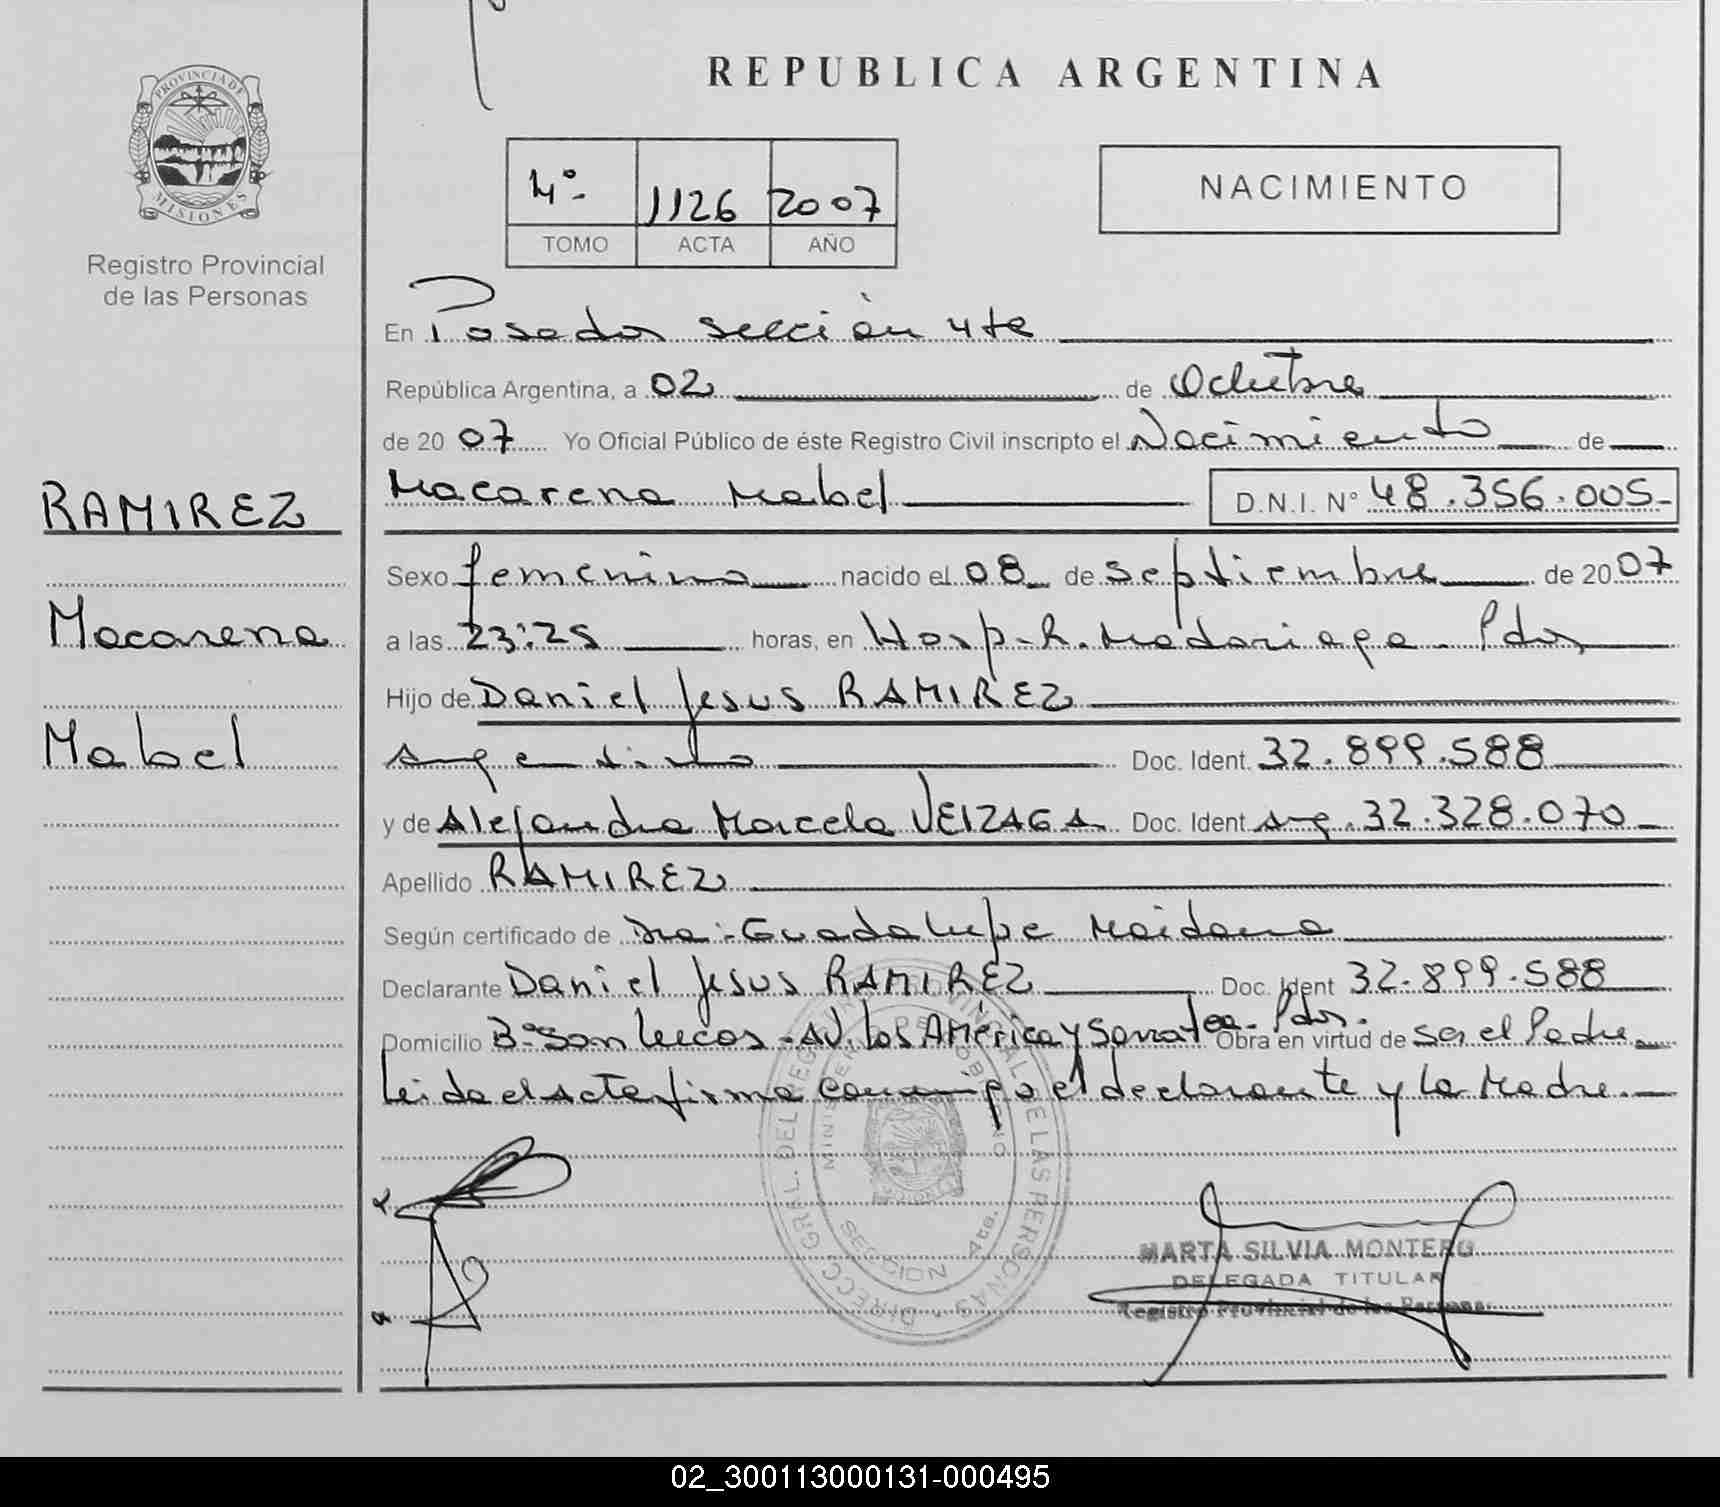 REPUBLICA ARGENTINA
PROVINCIA DE MISIONES
Registro Provincial
de las Personas
4º- 1126 2007
TOMO ACTA AÑO
NACIMIENTO
En Posadas sección 4ta
República Argentina, a 02 de Octubre
de 2007 Yo Oficial Público de éste Registro Civil inscripto el Nacimiento de
Macarena Mabel D.N.I. Nº 48.356.005-
RAMIREZ
Macarena
Mabel
Sexo femenino nacido el 08 de septiembre de 2007
a las 23:25 horas, en Hosp-R. Madariaga - Pdas
Hijo de Daniel Jesus RAMIREZ
Argentino Doc. Ident. 32.899.588
y de Alejandra Marcela VEIZAGA Doc. Ident Arg. 32.328.070
Apellido RAMIREZ
Según certificado de Dra. Guadalupe Maidana
Declarante Daniel Jesus RAMIREZ Doc. Ident 32.899.588
Domicilio Bº San Lucas - AV. Los América y Pdas. Obra en virtud de ser el Padre
Leida el Acta firma conmigo el declarante y la Madre.
DIRECC. GRAL. DEL REGISTRO PROVINCIAL DE LAS PERSONAS
MINISTERIO DE GOBIERNO
SECCION 4ta.
MARTA SILVIA MONTERO
DELEGADA TITULAR
Registro Provincial de las Personas
02_300113000131-000495